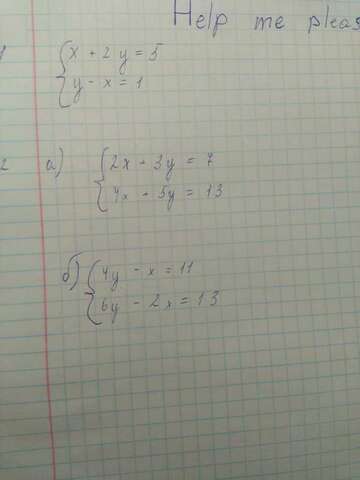 Help me pleas
x + 2y = 5
y - x = 1
2 a)
2x + 3y = 7
4x + 5y = 13
б)
4y - x = 11
6y - 2x = 13